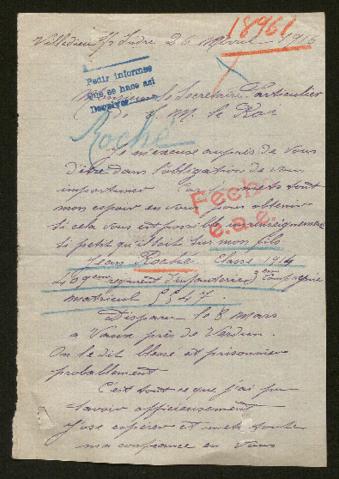 18961
Villedieu s/ Indre 26 Avril 1916
Pedir informes
Que se hace asi
Monsieur le Secrétaire Particulier
de S. M. le Roi
Roche
Je m'excuse auprès de vous
d'être dans l'obligation de vous
importuner mets tout
mon espoir en vous pour obtenir
si cela vous est possible un renseignement
si petit qu'il soit sur mon fils
Fecho
Jean Roche classe 1914
46 gem regiment d'infanterie 3 em Compagnie
matricul 5547.
Disparu le 8 Mars
a Vaux près de Verdun.
On le dit blessé et prisonnier
probablement
C'est tout ce que j'ai pu
savoir officieusement
J'ose espérer et mets toute
ma confiance en vous